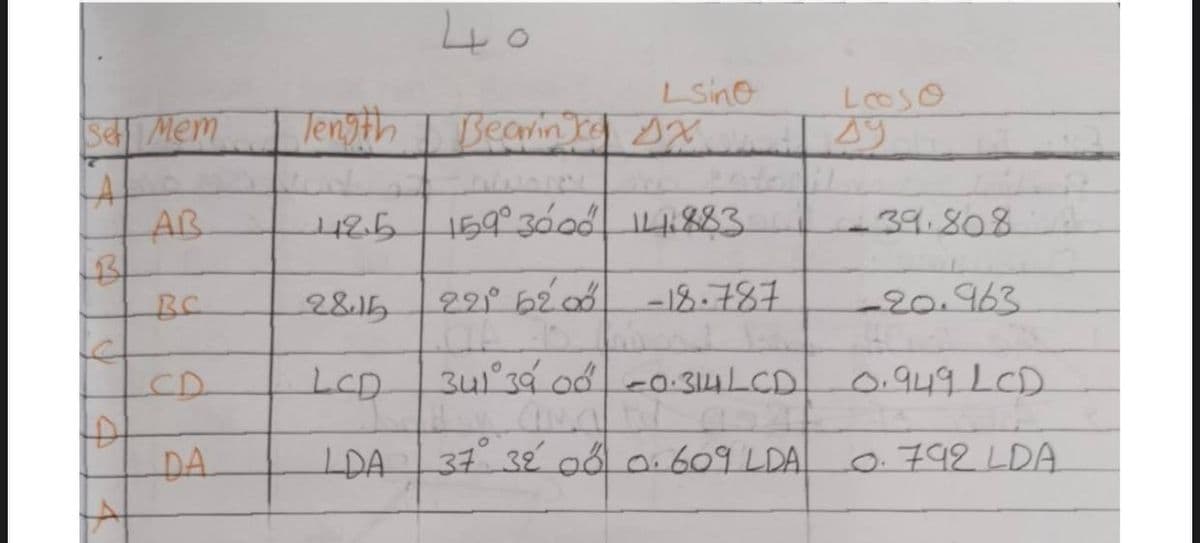 40
Lsinθ Lcosθ
Mem length Δx Δy
A
AB 42.5 159° 30' 00" 14.883 - 39.808
B
BC 28.15 221° 52' 00" -18.787 -20.963
C
CD LCD 341° 39' 00" -0.314 LCD 0.949 LCD
D
DA LDA 37° 32' 00" 0.609 LDA 0.792 LDA
A